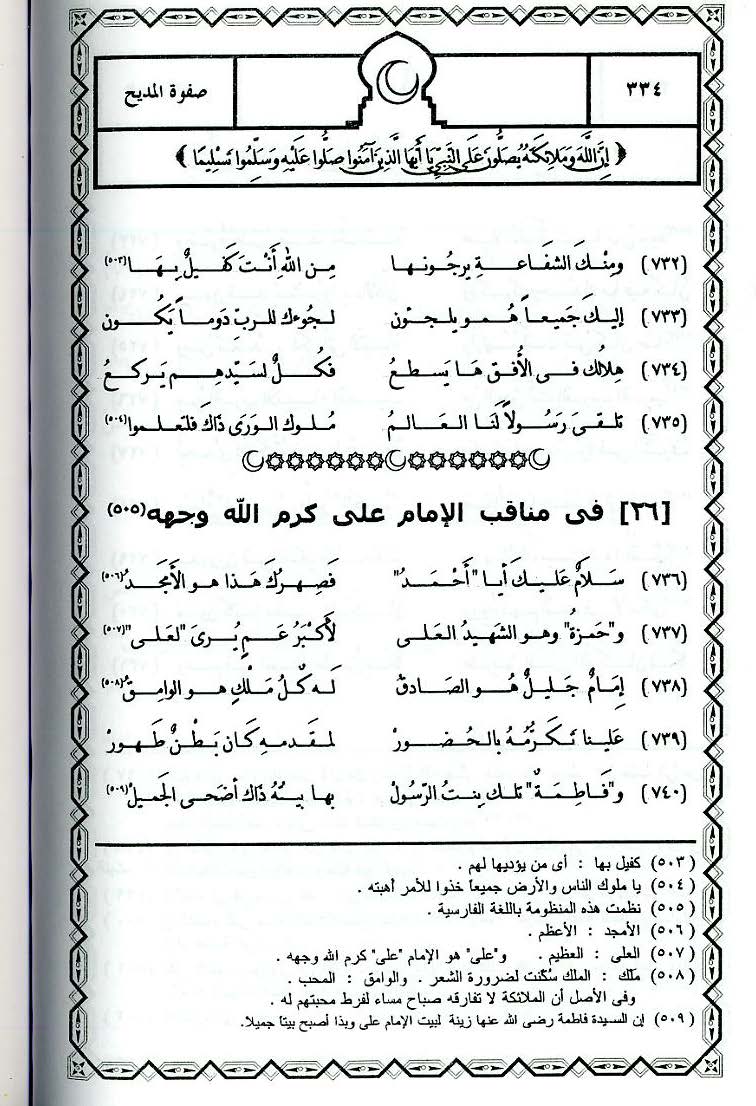 ٣٣٤
صفوة المديح
﴿ إِنَّ اللَّهَ وَمَلَائِكَتَهُ يُصَلُّونَ عَلَى النَّبِيِّ يَا أَيُّهَا الَّذِينَ آمَنُوا صَلُّوا عَلَيْهِ وَسَلِّمُوا تَسْلِيمًا ﴾
(٧٣٢) ومنْكَ الشفَاعَةِ يرجُونها مِن اللهِ أنْتَ كَفيلٌ بِهَا (٥٠٣)
(٧٣٣) إليكَ جَميعاً هُمو يلجئون لجوءك للربِّ دَوماً يَكُون
(٧٣٤) هِلالك فى الأفق هَا يَسطعُ فكُلٌ لسَيِّدهِم يَركعُ
(٧٣٥) تلقىَ رَسُولاً لنَا العَالمُ مُلوك الورَى ذَاكَ فلتعلموا (٥٠٤)
[٢٦] فى مناقب الإمام على كرم الله وجهه (٥٠٥)
(٧٣٦) سَلامٌ عَليكَ أيا "أحْمَدُ" فَصِهرُكَ هَذا هو الأمجَدُ (٥٠٦)
(٧٣٧) و"حَمزةُ" وهو الشهيدُ العَلى لأكْبَرُ عَمٍ يُرىَ "لعَلى" (٥٠٧)
(٧٣٨) إمَامٌ جَليلٌ هُو الصَادقُ لَهُ كُلُ مَلْكٍ هو الوامِقُ (٥٠٨)
(٧٣٩) عَلينا تَكَرُّمُهُ بالحُضورْ لمقدمهِ كَان بَطْنٌ طَهورْ
(٧٤٠) و"فَاطِمَةٌ" تلك بِنتُ الرّسُولْ بها بيتُهُ ذاك أضحى الجَميلْ (٥٠٩)
(٥٠٣) كفيل بها : أى من يؤديها لهم .
(٥٠٤) يا ملوك الناس والأرض جميعاً خذوا للأمر أهبته .
(٥٠٥) نظمت هذه المنظومة باللغة الفارسية .
(٥٠٦) الأمجد : الأعظم .
(٥٠٧) العلى : العظيم . و"على" هو الإمام "على" كرم الله وجهه .
(٥٠٨) ملْك : الملك سُكّنت لضرورة الشعر . والوامق : المحب .
وفى الأصل أن الملائكة لا تفارقه صباح مساء لفرط محبتهم له .
(٥٠٩) إن السيدة فاطمة رضى الله عنها زينة لبيت الإمام على وبذا أصبح بيتاً جميلا.